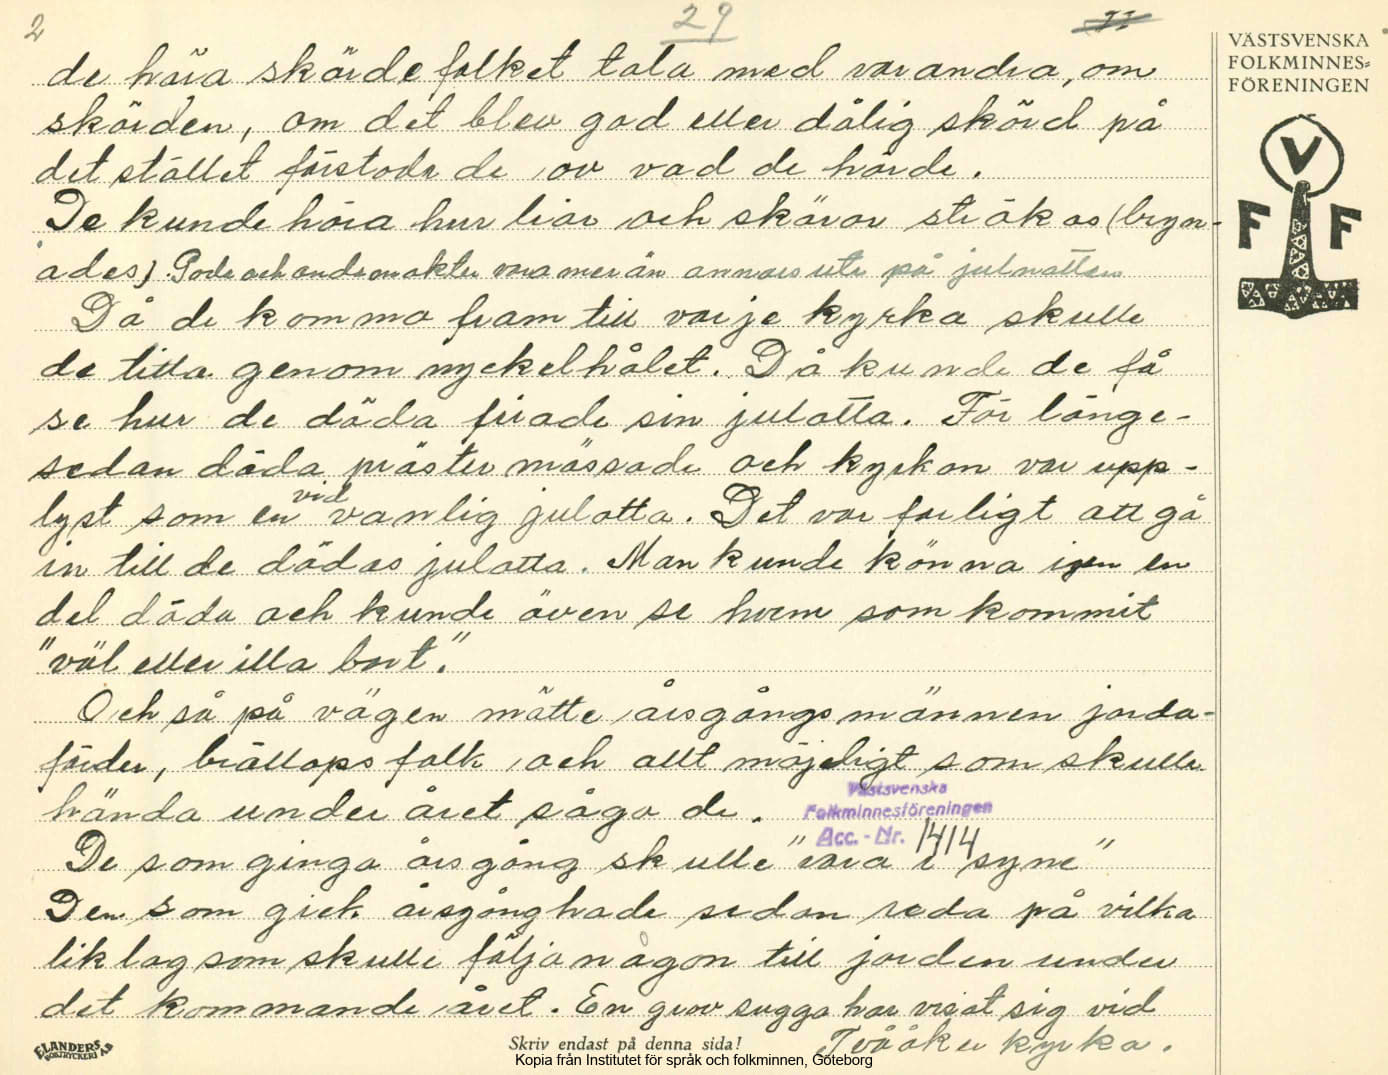 2
29
11
VÄSTSVENSKA
FOLKMINNES=
FÖRENINGEN
V
F F
de höra skördefolket tala med varandra, om
skörden, om det blev god eller dålig skörd på
det stället förstodo de av vad de hörde.
De kunde höra hur liar och skäror ströks (bryn-
ades). Goda och onda makter vara mer än annars ute på julnatten
Då de komma fram till varje kyrka skulle
de titta genom nyckelhålet. Då kunde de få
se hur de döda firade sin julotta. För länge-
sedan döda präster mässade och kyrkan var upp-
lyst som en vid vanlig julotta. Det var farligt att gå
in till de dödas julotta. Man kunde känna igen en
del döda och kunde även se hvem som kommit
"väl eller illa bort."
Och så på vägen mötte årsgångsmännen jorda-
färder, bröllopsfolk och allt möjeligt som skulle
hända under året sågo de.
Västsvenska
Folkminnesföreningen
Acc.-Nr. 1414
De som gingo årsgång skulle "vara i syne"
Den som gick årsgång hade sedan reda på vilka
liklag som skulle följa någon till jorden under
det kommande året. En grav sugga har visat sig vid
Tvååker kyrka.
ELANDERS
BOKTRYCKERI AB
Skriv endast på denna sida!
Kopia från Institutet för språk och folkminnen, Göteborg